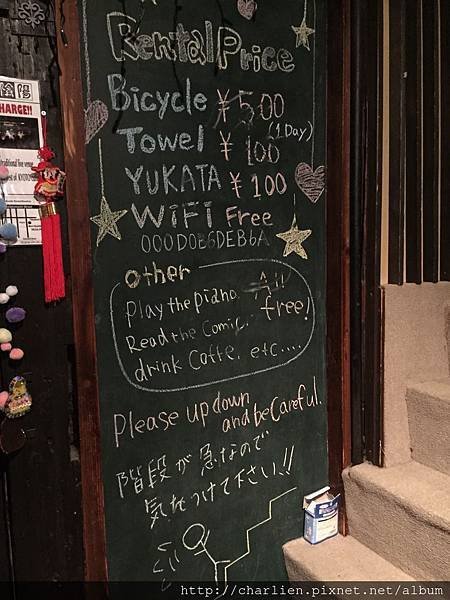 Rental Price
Bicycle ¥500
(1Day)
Towel ¥100
YUKATA ¥100
WiFi Free
000D0B6DEB6A
other
Play the piano.
Read the Comic. free!
drink Coffe. etc....
Please up down
and be careful.
階段が急なので
気をつけて下さい!!
CHARGE!!
http://charlien.pixnet.net/album